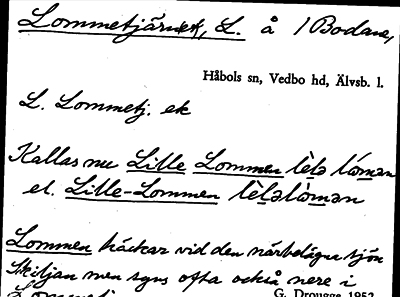 Lommetjärnet, L. å / Bodane,
Håbols sn, Vedbo hd, Älvsb. l.
L. Lommetj. ek
Kallas nu Lille Lommen lèlə lómən
el. Lille-Lommen lèləlòmən
Lommen häckar vid den närbelägna sjön
Skiljan men syns ofta också nere i
G. Drougge 1952